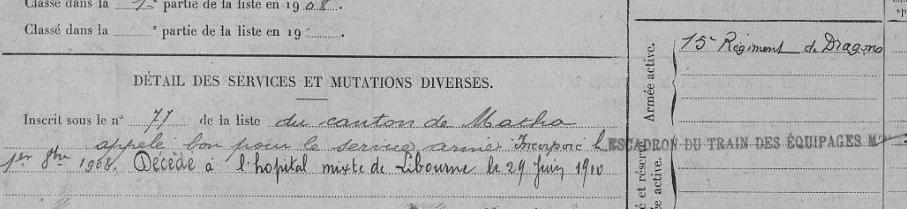 Classé dans la 1re partie de la liste en 1908.
Classé dans la e partie de la liste en 19 .
DÉTAIL DES SERVICES ET MUTATIONS DIVERSES.
Inscrit sous le n° 77 de la liste du canton de Matha
appelé bon pour le service armé Incorporé le
1er 8bre 1908. Décédé à l'hopital mixte de Libourne le 29 Juin 1910
Armée active.
15e Régiment de Dragons
ESCADRON DU TRAIN DES ÉQUIPAGES
et réserve
active.